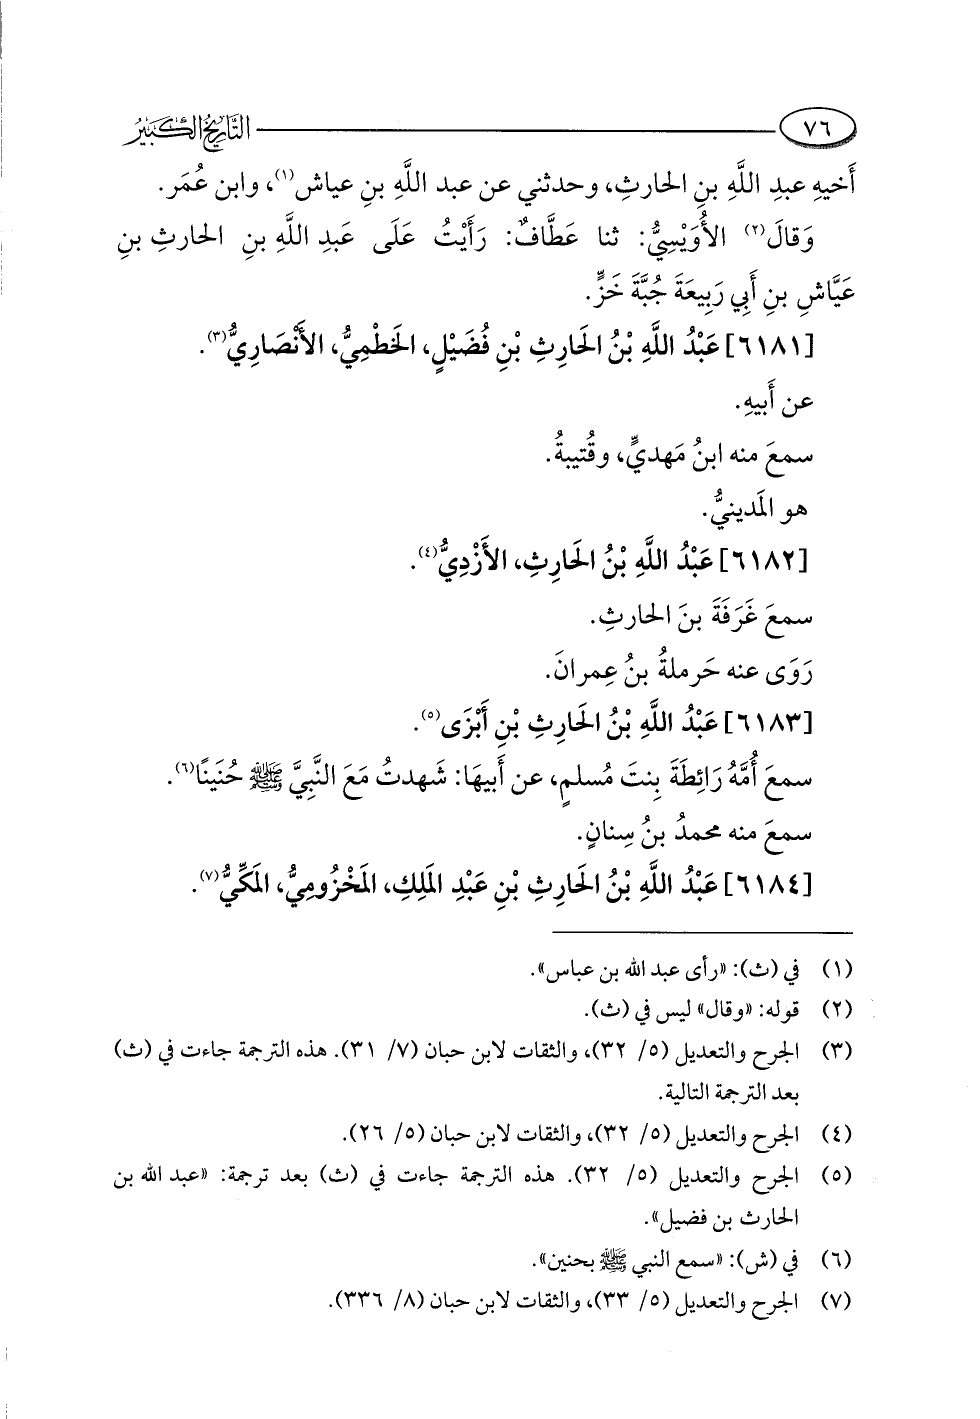 ٧٦ التاريخ الكبير
أَخيهِ عبدِ اللَّهِ بنِ الحارثِ، وحدثني عن عبد اللَّهِ بنِ عياش(١)، وابن عُمَر.
وَقالَ(٢) الأُوَيْسِيُّ: ثنا عَطَّافٌ: رَأَيْتُ عَلَى عَبدِ اللهِ بنِ الحارثِ بنِ
عَيَّاشِ بنِ أَبِي رَبِيعَةَ جُبَّةَ خَزٍّ.
[٦١٨١] عَبْدُ اللَّهِ بْنُ الحَارِثِ بْنِ فُضَيْلٍ، الخَطْمِيُّ، الأَنْصَارِيُّ(٣).
عن أَبيهِ.
سمعَ منه ابنُ مَهديٍّ، وقُتيبةُ.
هو المَدينيُّ.
[٦١٨٢] عَبْدُ اللَّهِ بْنُ الحَارِثِ، الأَزْدِيُّ(٤).
سمعَ غَرَفَةَ بنَ الحارثِ.
رَوَى عنه حَرملةُ بنُ عِمرانَ.
[٦١٨٣] عَبْدُ اللَّهِ بْنُ الحَارِثِ بْنِ أَبْزَى(٥).
سمعَ أُمَّهُ رَائِطَةَ بِنتَ مُسلمٍ، عن أَبيهَا: شَهدتُ مَعَ النَّبِيَّ ﷺ حُنَينًا(٦).
سمعَ منه محمدُ بنُ سِنانٍ.
[٦١٨٤] عَبْدُ اللَّهِ بْنُ الحَارِثِ بْنِ عَبْدِ المَلِكِ، المَخْزُومِيُّ، المَكِّيُّ(٧).
(١) في (ث): «رأى عبد الله بن عباس».
(٢) قوله: «وقال» ليس في (ث).
(٣) الجرح والتعديل (٥/ ٣٢)، والثقات لابن حبان (٧/ ٣١). هذه الترجمة جاءت في (ث)
بعد الترجمة التالية.
(٤) الجرح والتعديل (٥/ ٣٢)، والثقات لابن حبان (٥/ ٢٦).
(٥) الجرح والتعديل (٥/ ٣٢). هذه الترجمة جاءت في (ث) بعد ترجمة: «عبد الله بن
الحارث بن فضيل».
(٦) في (ش): «سمع النبي ﷺ بحنين».
(٧) الجرح والتعديل (٥/ ٣٣)، والثقات لابن حبان (٨/ ٣٣٦).